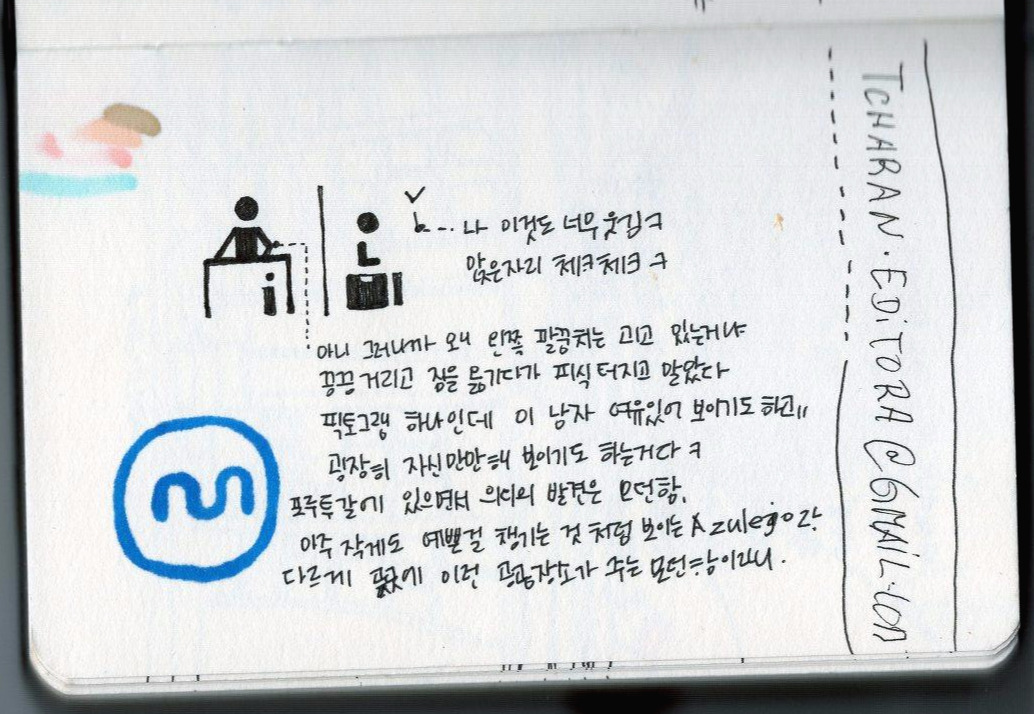 나 이것도 너무 웃김ㅋ
앉은자리 체크체크 ㅋ
아니 그러니까 왜 왼쪽 팔꿈치는 괴고 있는거냐
끙끙거리고 짐을 옮기다가 피식 터지고 말았다
픽토그램 하나인데 이 남자 여유있어 보이기도 하고
굉장히 자신만만해 보이기도 하는거다 ㅋ
포루투갈에 있으면서 의외의 발견은 모던함.
아주 작게도 예쁜걸 챙기는 것 처럼 보이는 Azulejo랑
다르게 곳곳에 이런 공공장소가 주는 모던함이라니.
TCHARAN.EDiTORA@GMAIL.COM